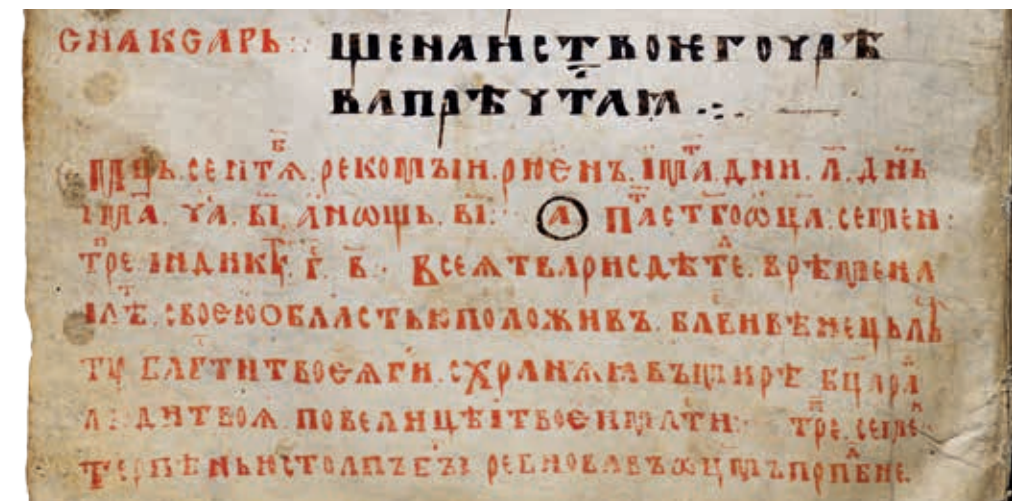 СНАКСАРЬ:· ШЕНАНСТВОНЕГОУРѢ
КАПРѢУТАꙖ .:.
МЦЬ. СЕПТѦ҃. РЕКОМЪІИ. РЮЄНЪ. ІМАТ. ДНИ. Л҃. ДН҃Ь
ІМА. ЧА. ВІ҃. АНѠЩЬ. ВІ҃:· А҃ ПАСТГО ѾЦА. СЕМЕН:
ТРЕ. ІНДИКТ. Г҃. В҃. ВСЕѦТВАРИСДѢТЕ. ВРѢМЕНА
ІЛѢ. СВОЄЮОБЛАСТЬЮПОЛОЖИВЪ. БЛВ҃НВѢНЕЦЬЛѢ
ТЦ БЛГ҃ТИТВОЄѦГИ. СХРАНѦꙖВЪМИРѢ БЦ҃АРѦ
Л:ДИТВОꙖ. ПОВЕЛИЦѢІТВОЄИМЛТИ:· ТРЕ. СЕМЕ
ТЕРПѢНЬЮСТОЛПЪБЪІ РЕВНОВАВЪ ПРПБНЕ.